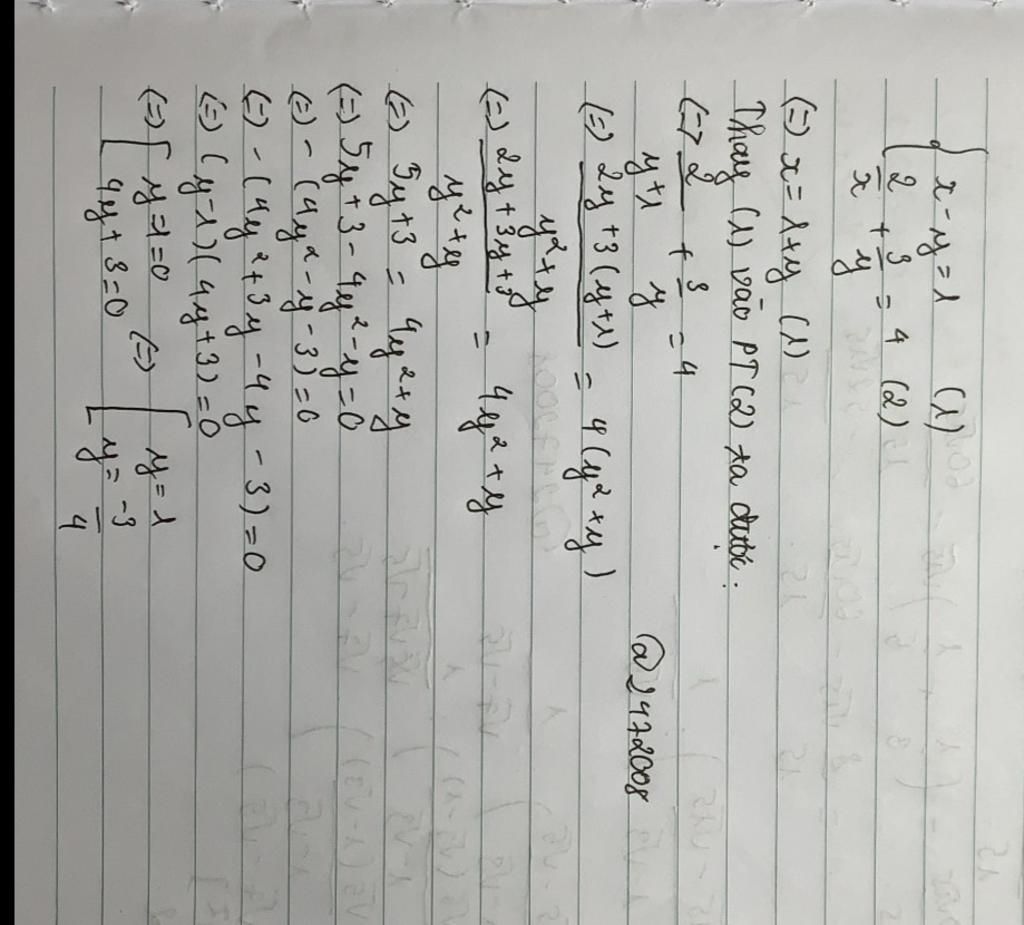 { x - y = 1 (1)
2/x + 3/y = 4 (2)
(=) x = 1 + y (1)
Thay (1) vào PT(2) ta được:
(=> 2/(y+1) + 3/y = 4
(=) (2y + 3(y+1))/(y²+y) = 4(y²+y)
(=) (2y + 3y + 3)/(y²+y) = 4y² + y
(=) 5y + 3 = 4y² + y
(=) 5y + 3 - 4y² - y = 0
(=) -(4y² - y - 3) = 0
(=) -(4y² + 3y - 4y - 3) = 0
(=) (y-1)(4y+3) = 0
(=) [ y-1=0 (=) [ y = 1
4y+3=0 y = -3/4
@J472008